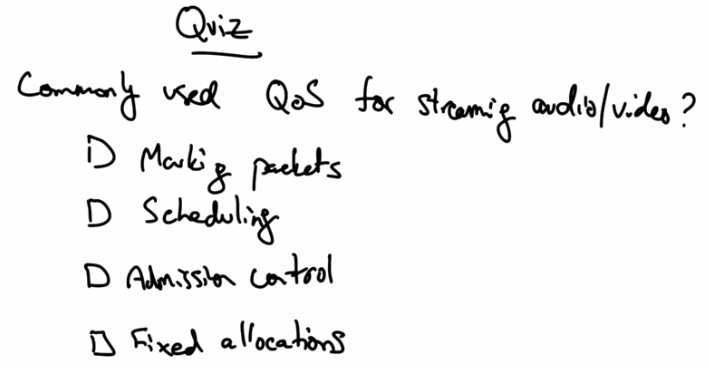 Quiz
Commonly used QoS for streaming audio/video?
Marking packets
Scheduling
Admission control
Fixed allocations